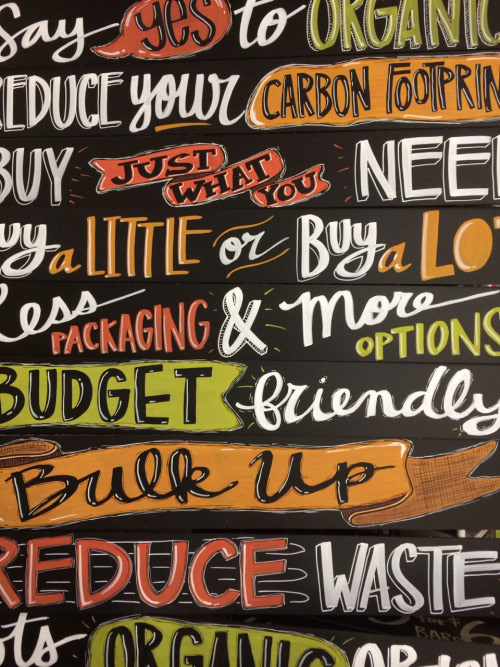 Say YES to ORGANIC
REDUCE your CARBON FOOTPRIN
BUY JUST WHAT YOU NEE
uy a LITTLE or Buy a LOT
Less PACKAGING & More OPTIONS
BUDGET friendly
Bulk Up
REDUCE WASTE
ots ORGANIC
BARS